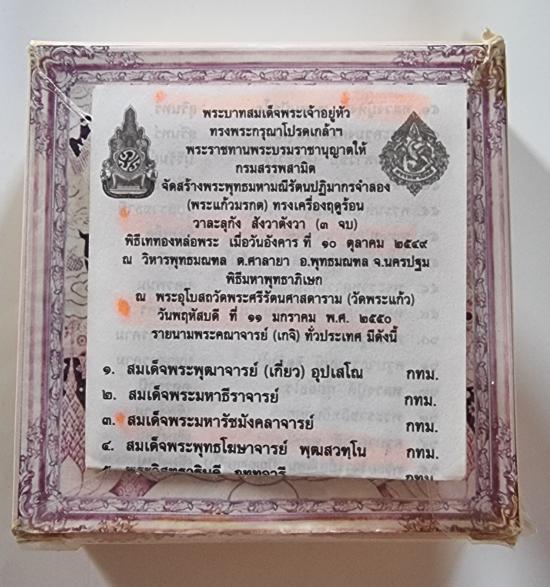 พระบาทสมเด็จพระเจ้าอยู่หัว
ทรงพระกรุณาโปรดเกล้าฯ
พระราชทานพระบรมราชานุญาตให้
กรมสรรพสามิต
จัดสร้างพระพุทธมหามณีรัตนปฏิมากรจำลอง
(พระแก้วมรกต) ทรงเครื่องฤดูร้อน
วาละลุกัง สังวาตังวา (๓ จบ)
พิธีเททองหล่อพระ เมื่อวันอังคาร ที่ ๑๐ ตุลาคม ๒๕๔๙
ณ วิหารพุทธมณฑล ต.ศาลายา อ.พุทธมณฑล จ.นครปฐม
พิธีมหาพุทธาภิเษก
ณ พระอุโบสถวัดพระศรีรัตนศาสดาราม (วัดพระแก้ว)
วันพฤหัสบดี ที่ ๑๑ มกราคม พ.ศ. ๒๕๕๐
รายนามพระคณาจารย์ (เกจิ) ทั่วประเทศ มีดังนี้
๑. สมเด็จพระพุฒาจารย์ (เกี่ยว) อุปเสโณ กทม.
๒. สมเด็จพระมหาธีราจารย์ กทม.
๓. สมเด็จพระมหารัชมังคลาจารย์ กทม.
๔. สมเด็จพระพุทธโฆษาจารย์ พุฒสวฑฺโน กทม.
กทม.